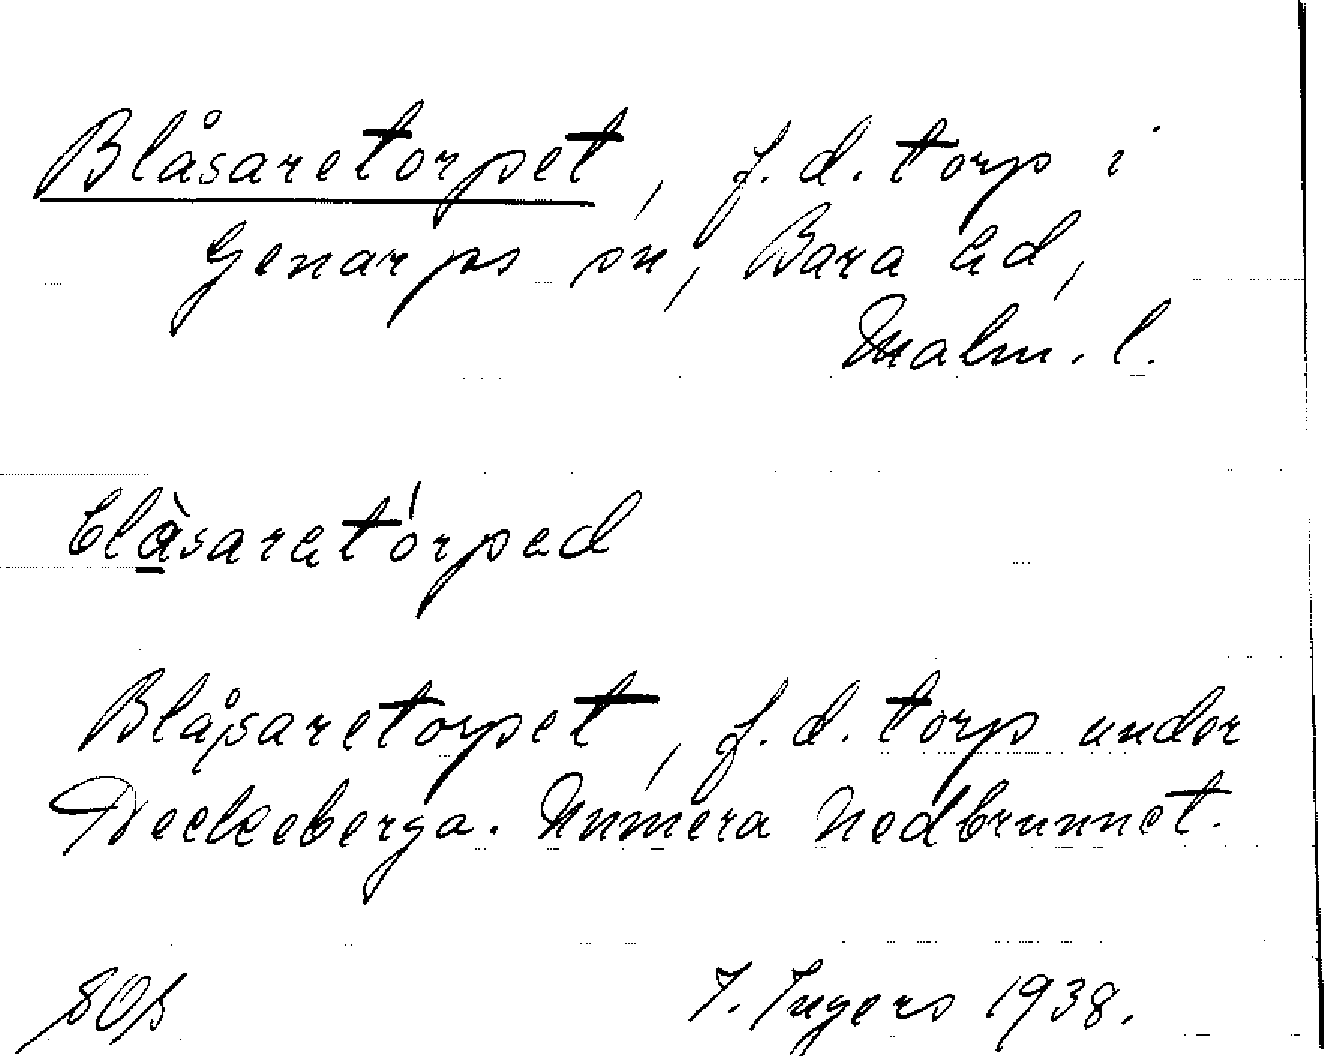 Blåsaretorpet, f.d. torp i
Genarps sn, Bara hd,
Malm. l.
blàsaretórped
Blåsaretorpet, f.d. torp under
Heckeberga. Numera nedbrunnet.
I. Ingers 1938.